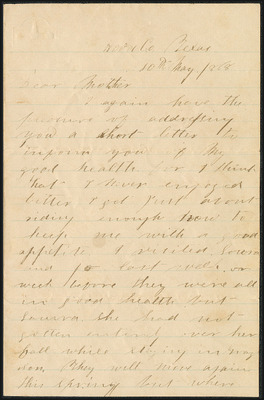 Texas
10th May 1868
Dear Mother
I again have the
pleasure of addressing
you a short letter to
inform you of my
good health for I think
that I never enjoyed
better I get just about
riding enough now to
keep me with a good
appetite I visited Louisa
and last week or
week before they were all
in good health but
Louisa she had not
gotten entirely over her
They will move again
this Spring but where